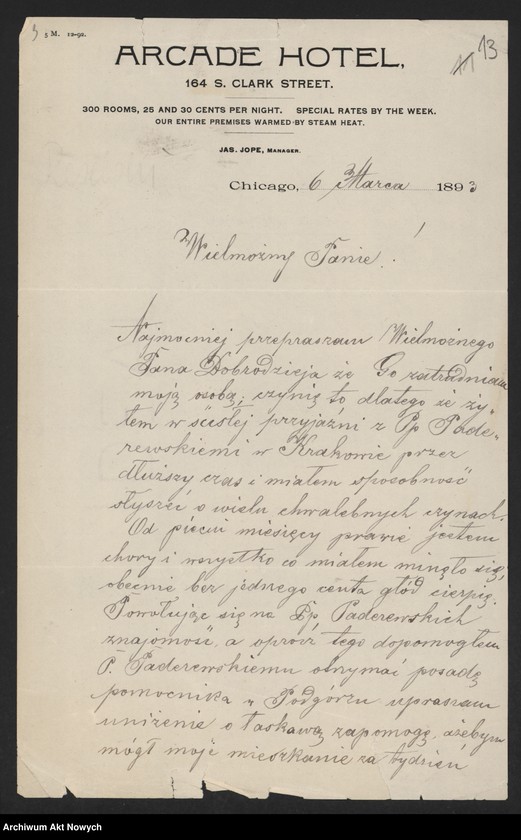 5 M. 12-92.
13
ARCADE HOTEL,
164 S. CLARK STREET.
300 ROOMS, 25 AND 30 CENTS PER NIGHT. SPECIAL RATES BY THE WEEK.
OUR ENTIRE PREMISES WARMED BY STEAM HEAT.
JAS. JOPE, MANAGER.
Chicago, 6 Marca 1893
Wielmożny Panie!
Najmocniej przepraszam Wielmożnego
Pana Dobrodzieja że Go zatrudniam
moją osobą; czynię to dlatego że ży-
łem w ścisłej przyjaźni z Pp Pade-
rewskiemi w Krakowie przez
dłuższy czas i miałem sposobność
słyszeć o wielu chwalebnych czynach.
Od pięciu miesięcy prawie jestem
chory i wszystko co miałem minęło się,
obecnie bez jednego centa głód cierpię.
Powołując się na Pp. Paderewskich
znajomość, a oprócz tego dopomogłem
P. Paderewskiemu otrzymać posadę
pomocnika w Podgórzu upraszam
uniżenie o łaskawą zapomogę, ażebym
mógł moje mieszkanie za tydzień
Archiwum Akt Nowych